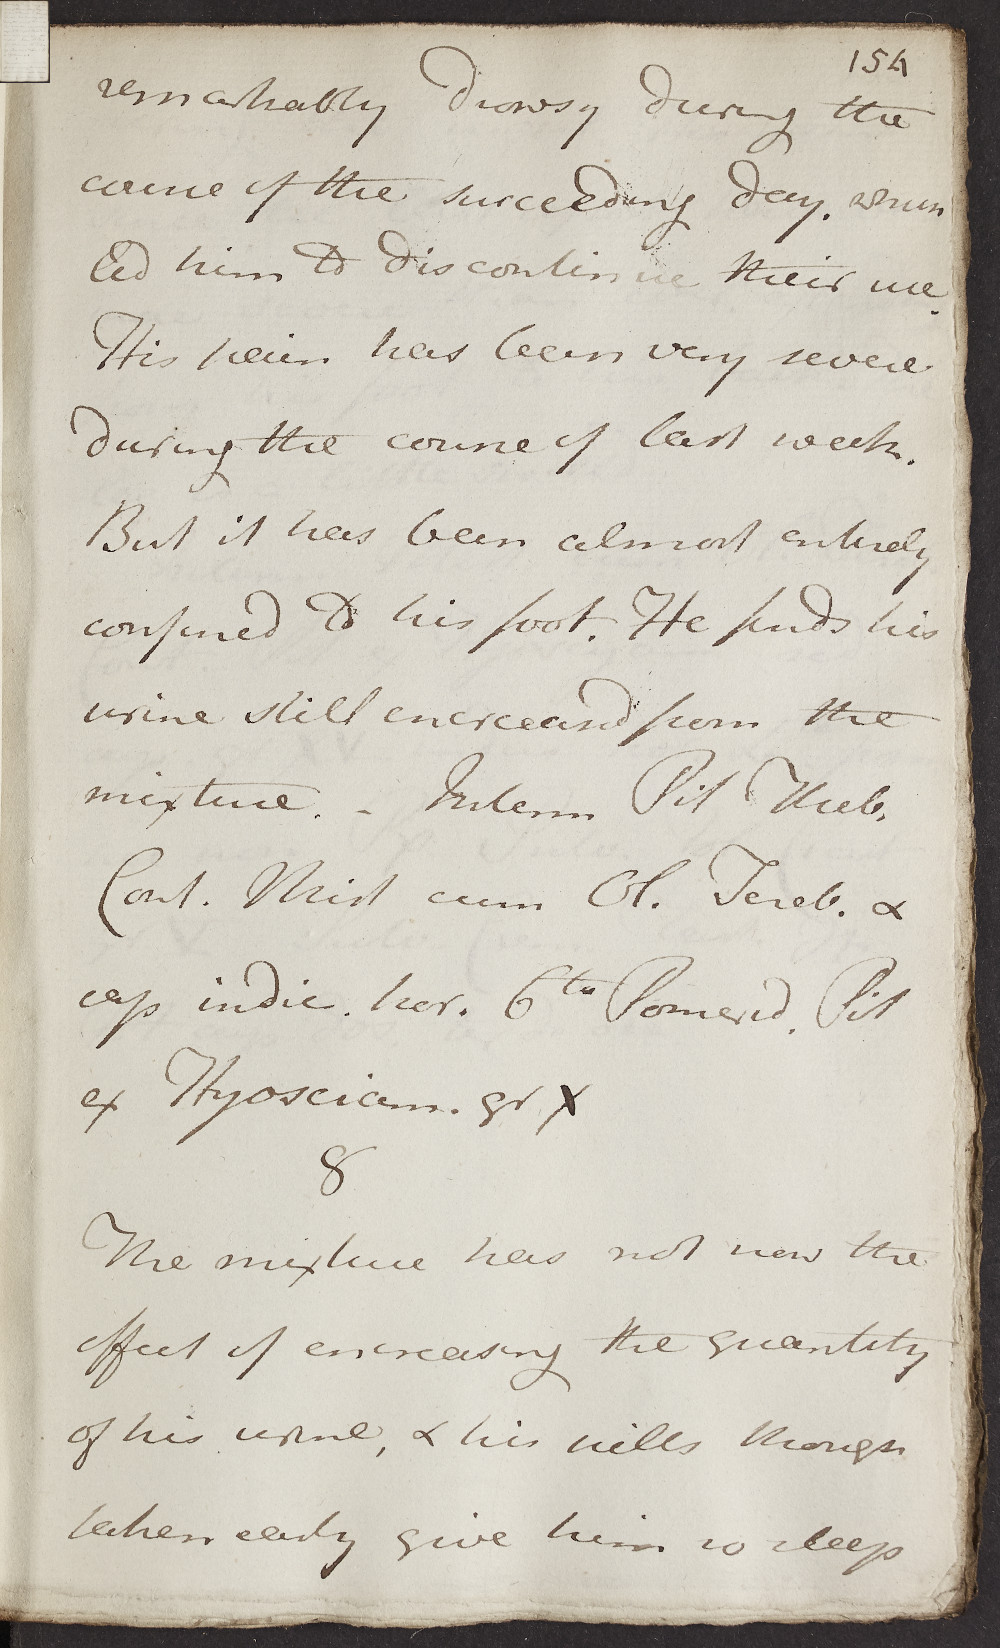 154
remarkably drowsy during the
course of the succeeding day, which
led him to discontinue their use.
His pain has been very severe
during the course of last week.
But it has been almost entirely
confined to his foot. He finds his
urine still encreased from the
mixture. - Interm Pil Theb.
Cont. Mist cum Ol. Tereb. &
cap indies. hor. 6ta Pomerid. Pil
ex Hyosciam. gr X
8
The mixture has not now the
effect of encreasing the quantity
of his urine, & his pills though
taken early give him no sleep